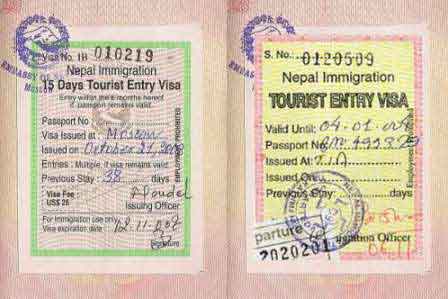 Visa No. 1B 010219
Nepal Immigration
15 Days Tourist Entry Visa
Entry within the 6 months hereof
if passport remains valid.
Passport No
Visa Issued at: Moscow
Issued on: October 21,
Entries: Multiple, if visa remains valid.
Previous Stay: 38 days
Visa Fee
US$ 25
Issuing Officer
For Immigration use only
Visa expiration date
Signature
EMPLOYMENT PROHIBITED
EMBASSY OF
S. No. 0120509
Nepal Immigration
TOURIST ENTRY VISA
Valid Until: 04-01-
Passport No
Issued At: TIA
Issued On:
Previous Stay: days
parture
2020201
Officer
EMBASSY